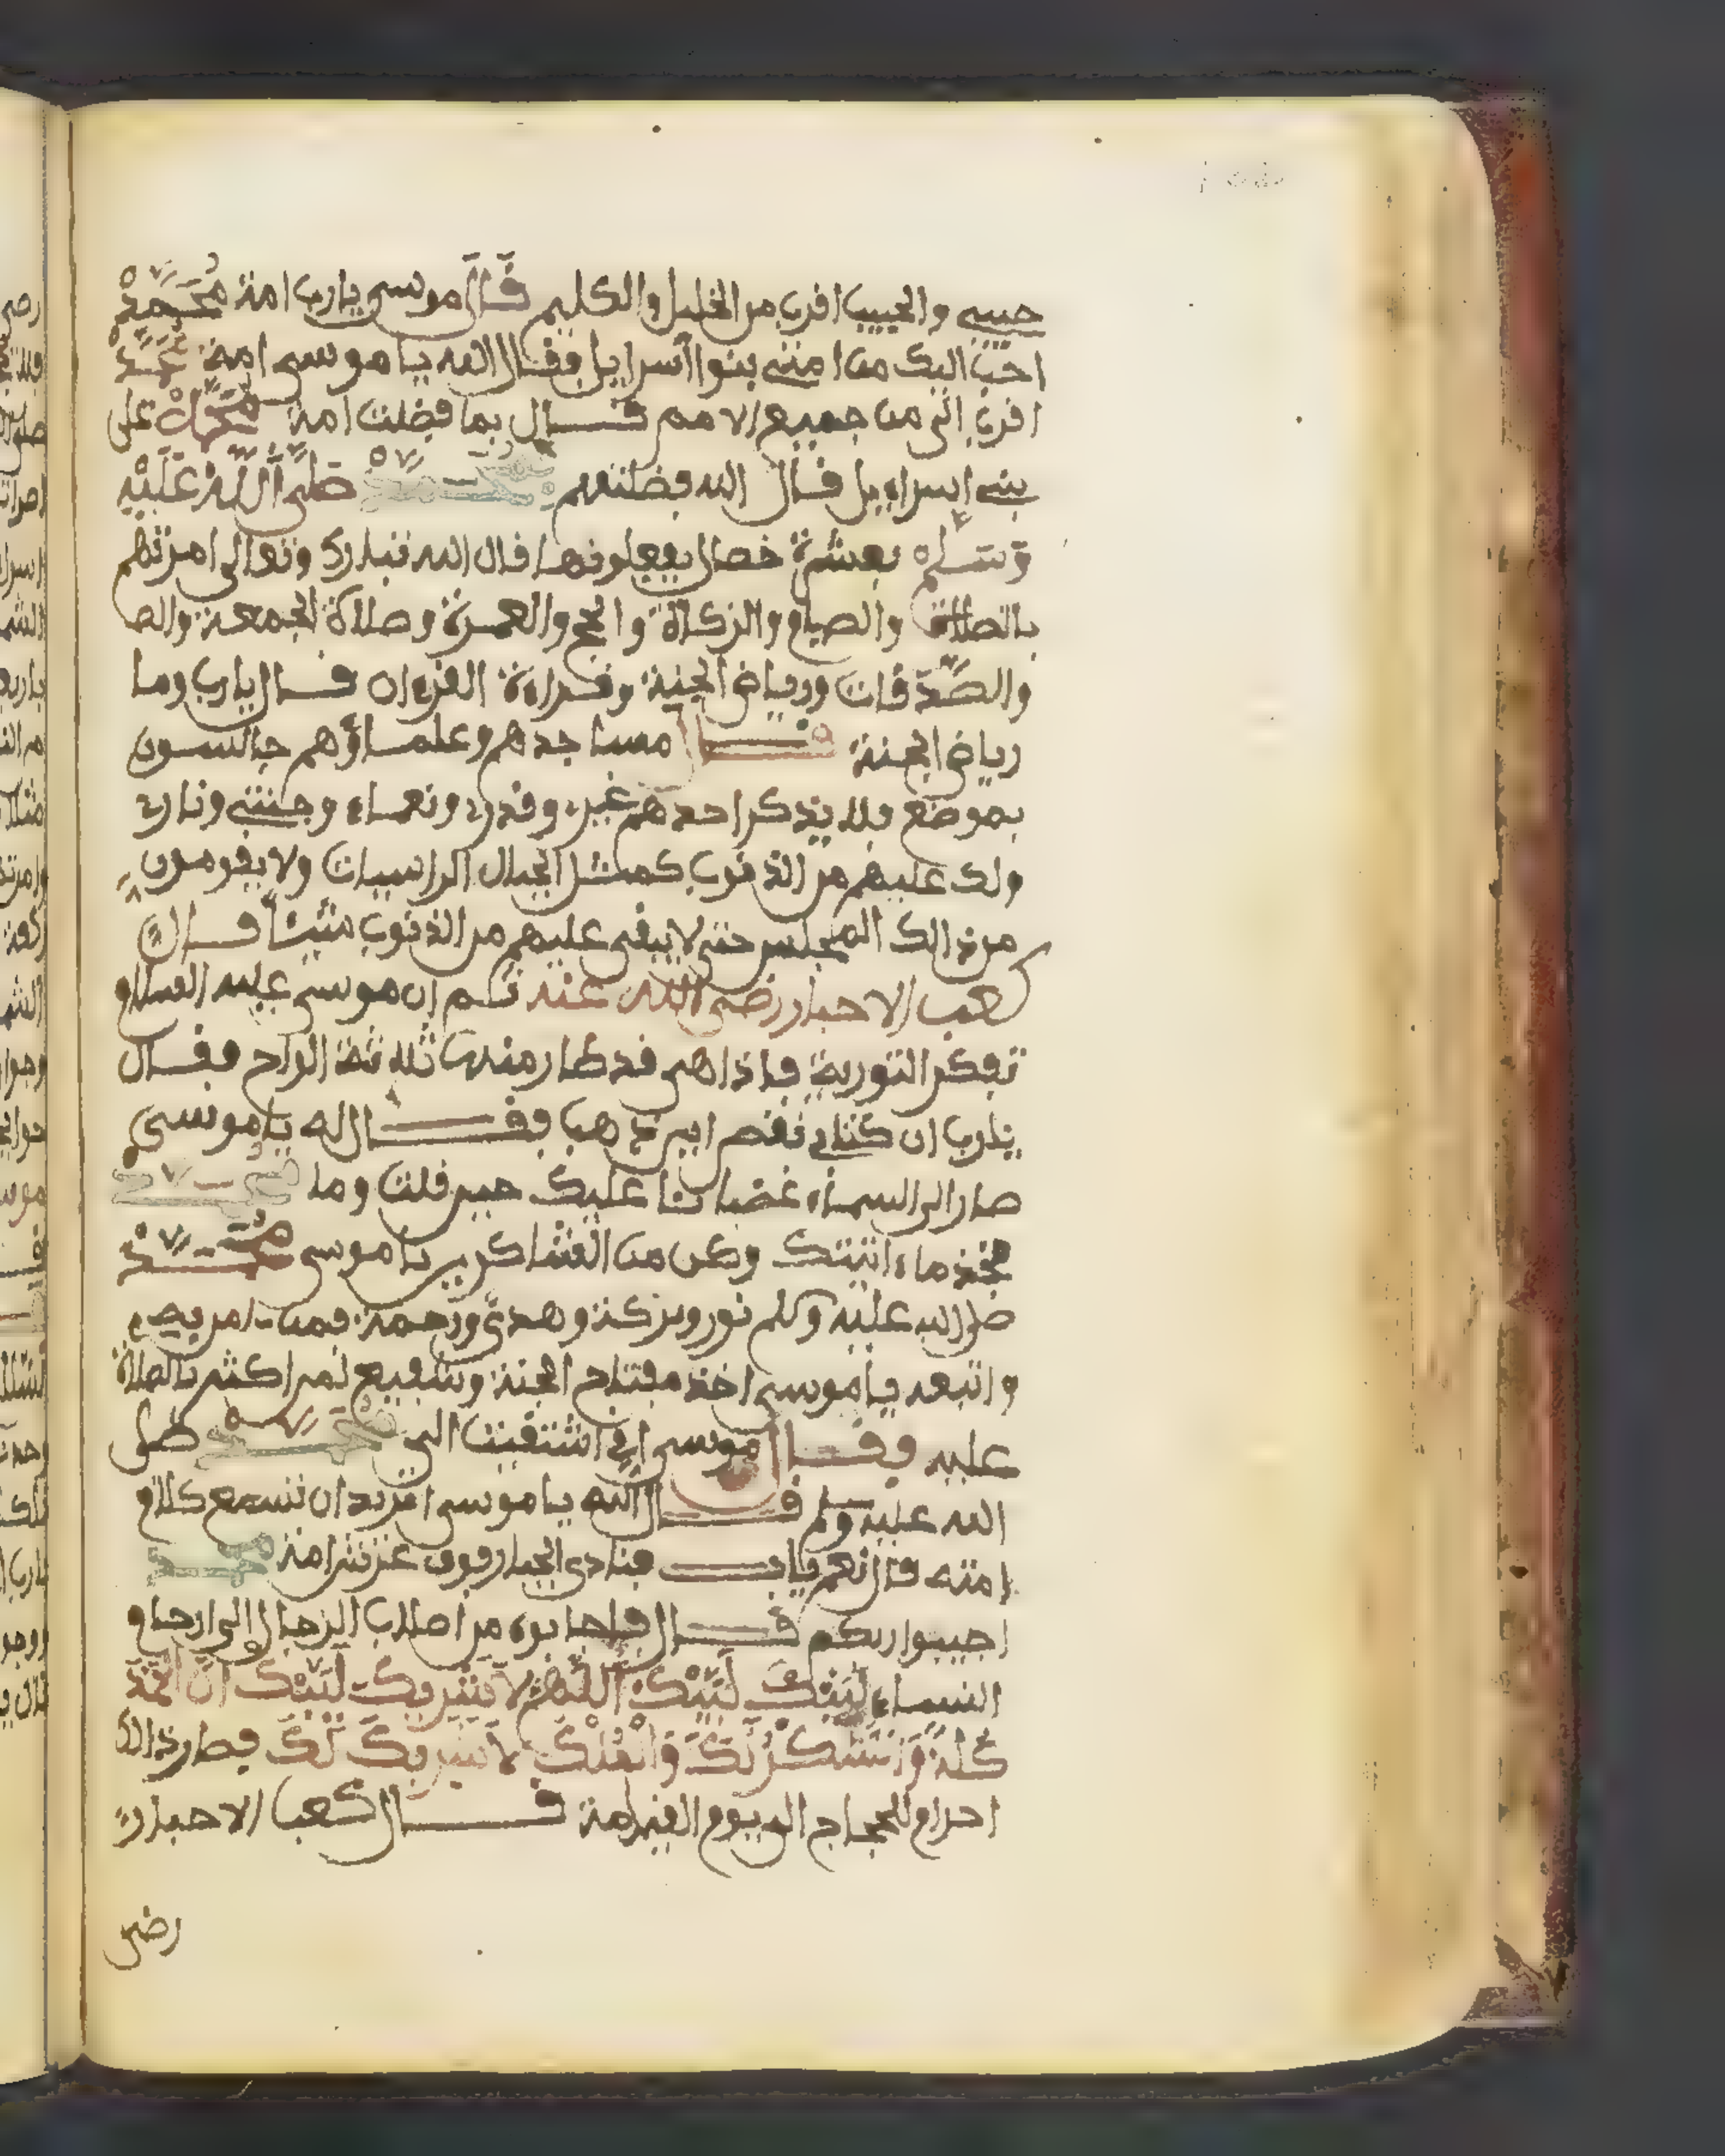 حبيبي والحبيب اقرب من الخليل والكليم قال موسى يارب امة مُحَمَّدْ
احب اليك من امتي بنوا اسرايل فقال الله يا موسى امة مُحَمَّدْ
اقرب الي من جميع الامم قال بما فضلت امة مُحَمَّدْ على
بني إسراءيل قال الله فضلتهم بمحمد صَلَّى اَللَّهُ عَلَيْهِ
وَسَلم بعشرة خصال يفعلونها قال الله تبارك وتعالى امرتهم
بالصلاة والصيام والزكاة والحج والعمرة وصلاة الجمعة والص
والصَّدَقات ورياض الجنة وقراءة القرءان قال يارب وما
رياض الجنة قال مساجدهم وعلماؤهم جالسون
بموضع فلا يذكر احدهم غيره وقدري ونعماء وجنتي وناري
ولك عليهم من الذنوب كمثل الجبال الراسيات ولا يقومون
من ذالك المجلس حتى لا يبقى عليهم من الذنوب شيئاً قال
كعب الاحبار رضي الله عنه ثم ان موسى عليه السلام
تفكر التورية فاذا هي قد طار منها ثلاثة الواح فقال
يارب ان كتابي نقص اين ذهب فقال له يا موسى
صار الى السماء غضبانا عليك حين قلت وما محمد
فخذ ما ءاتيتك وكن من الشاكرين يا موسى محمد
صلى الله عليه وسلم نور وبركة وهدى ورحمة فمن امن به
واتبعه يا موسى اخذ مفتاح الجنة وشفيع لمن اكثر بالصلاة
عليه فقال موسى اني اشتقيت الى محمد صلى
الله عليه وسلم قال الله يا موسى اتريد ان تسمع كلام
امته قال نعم يارب فنادى الجبار فوق عرشه امة محمد
اجيبوا ربكم قال فاجابوه من اصلاب الرجال الى ارحام
النساء لَبَيْكَ لَبَيْكَ اللَّهُمَّ لا شَرِيكَ لَبَيْكَ انَّ الحمد
كلهُ وَالشكرُ لَكَ وَالمُلْكَ لا شَرِيكَ لَكَ فصار ذالك
احرام للحجاج الى يوم القيامة قال كعب الاحبار
رضي